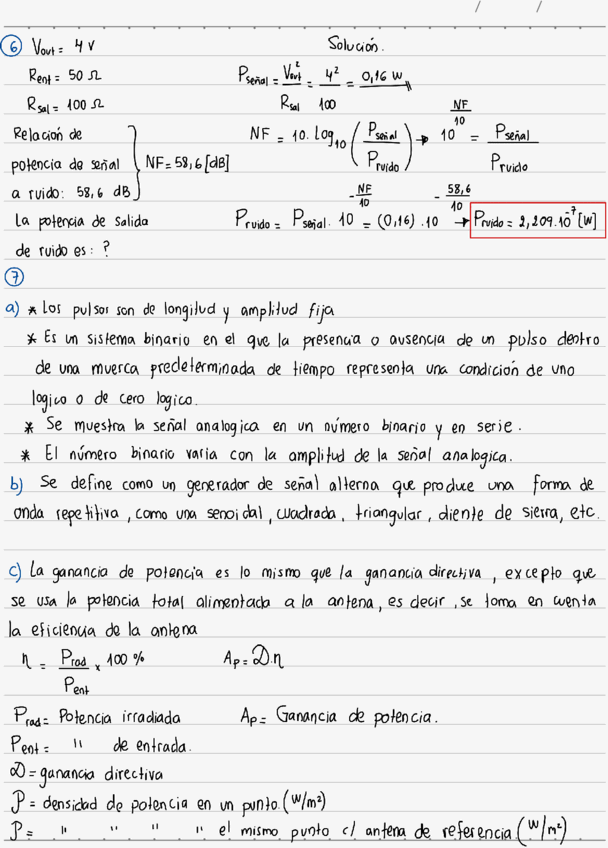 / /
6 Vout = 4 V Solución.
Rent = 50 Ω Pseñal = Vout² / Rsal = 4² / 100 = 0,16 W
Rsal = 100 Ω
Relación de potencia de señal a ruido: 58,6 dB } NF = 58,6 [dB] NF = 10. Log10 (Pseñal / Pruido) → 10^(NF/10) = Pseñal / Pruido
La potencia de salida Pruido = Pseñal. 10^(-NF/10) = (0,16) .10^(-58,6/10) → Pruido = 2,209.10⁻⁷ [W]
de ruido es: ?
7
a) * Los pulsos son de longitud y amplitud fija
* Es un sistema binario en el que la presencia o ausencia de un pulso dentro
de una muerca predeterminada de tiempo representa una condición de uno
logico o de cero logico.
* Se muestra la señal analogica en un número binario y en serie.
* El número binario varia con la amplitud de la señal analogica.
b) Se define como un generador de señal alterna que produce una forma de
onda repetitiva, como una senoidal, cuadrada, triangular, diente de sierra, etc.
c) La ganancia de potencia es lo mismo que la ganancia directiva, excepto que
se usa la potencia total alimentada a la antena, es decir, se toma en cuenta
la eficiencia de la antena
η = Prad / Pent × 100 % Ap = D.η
Prad = Potencia irradiada Ap = Ganancia de potencia.
Pent = " de entrada.
D = ganancia directiva
P = densidad de potencia en un punto (W/m²)
P = " " " " el mismo punto c/ antena de referencia (W/m²)